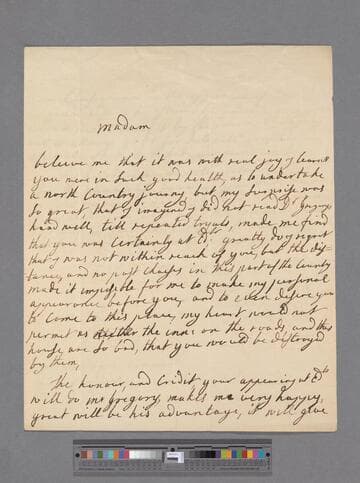 Madam
beleive me that it was with real joy I learnt
you were in such good health, as to undertake
a North Country journy, but my surprise was
so great, that I imagined I did not read Dr. Gregorys
hand well, till repeated tryals, made me find
that you was certainly at Edr. greatly do I regret
that I was not within reach of you, but the dis-
tance, and no post chaises in this part of the Country
made it impossible for me to make my personal
appearance before you, and to even desire you
to come to this place, my heart would not
permit as the inns on the roads and this
house are so bad, that you would be destroyed
by them,
The honour and credit your appearing at Edr.
will do Mr Gregory, makes me very happy,
great will be his advantage, it will give